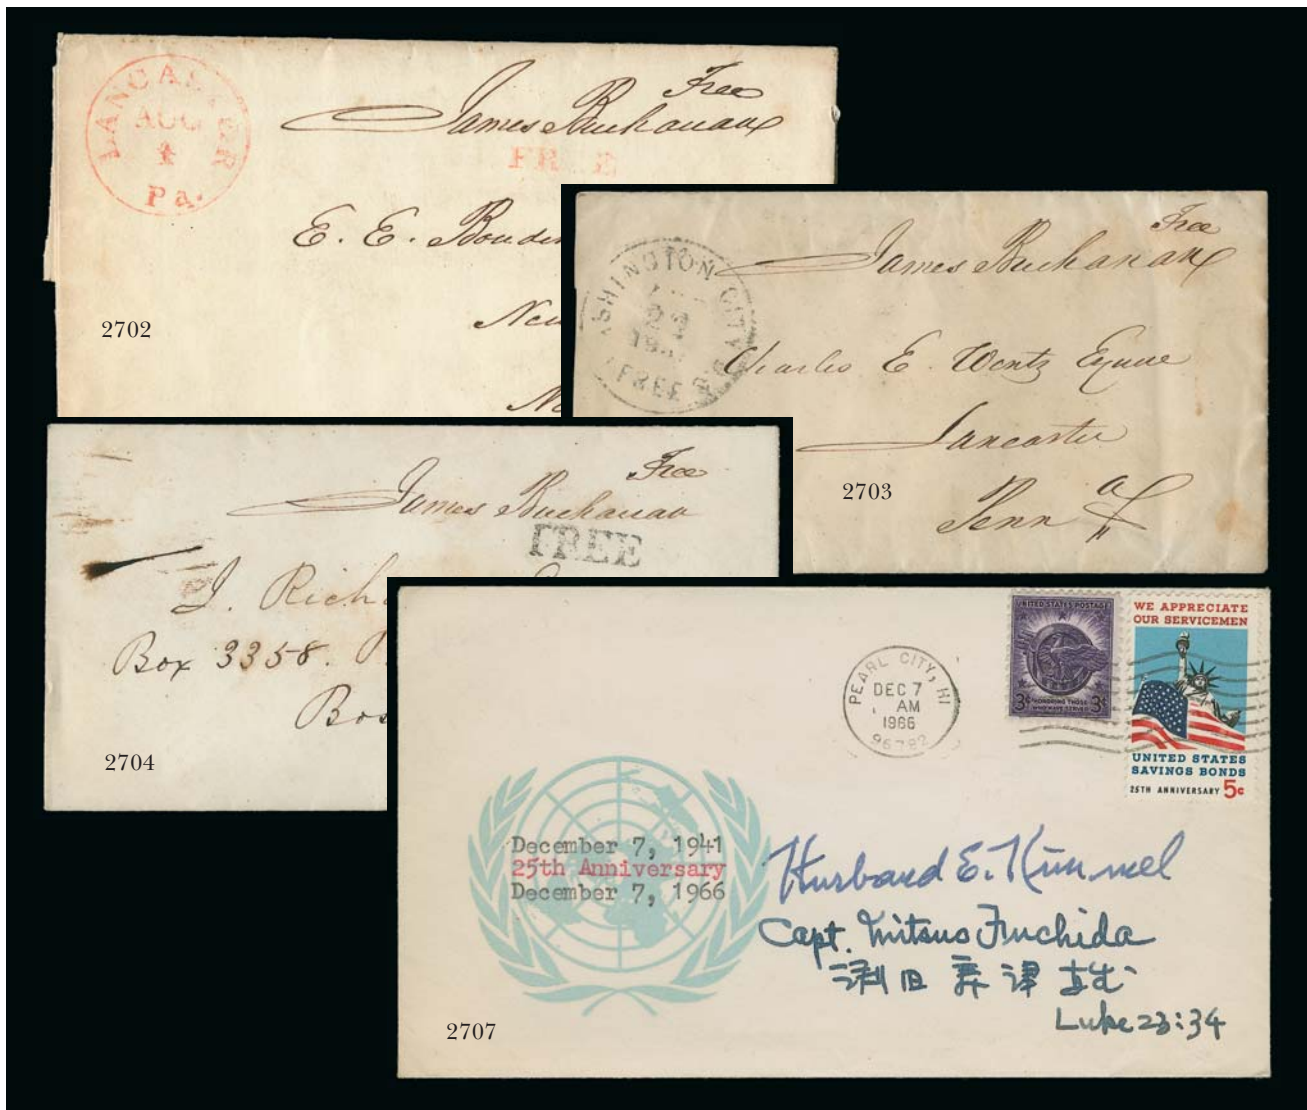 LANCASTER
AUG
1
Pa.
Free
James Buchanan
FREE
E. E. Boudin
New
2702
WASHINGTON CITY
22
FREE
Free
James Buchanan
Charles E. Wentz Esquire
Lancaster
Penn a
2703
Free
James Buchanan
FREE
J. Rich
Box 3358. P
Bos
2704
PEARL CITY, HI
DEC 7
AM
1966
96782
UNITED STATES POSTAGE
3¢ HONORING THOSE WHO HAVE SERVED 3¢
WE APPRECIATE
OUR SERVICEMEN
UNITED STATES
SAVINGS BONDS
25TH ANNIVERSARY 5c
December 7, 1941
25th Anniversary
December 7, 1966
Husband E. Kimmel
Capt. Mitsuo Fuchida
渕田美津雄
Luke 23:34
2707